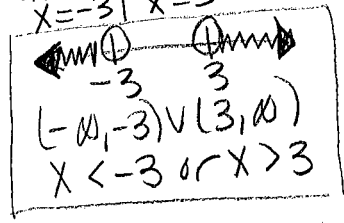 x=-3| x=3
-3 3
(-∞,-3)∪(3,∞)
x<-3 or x>3